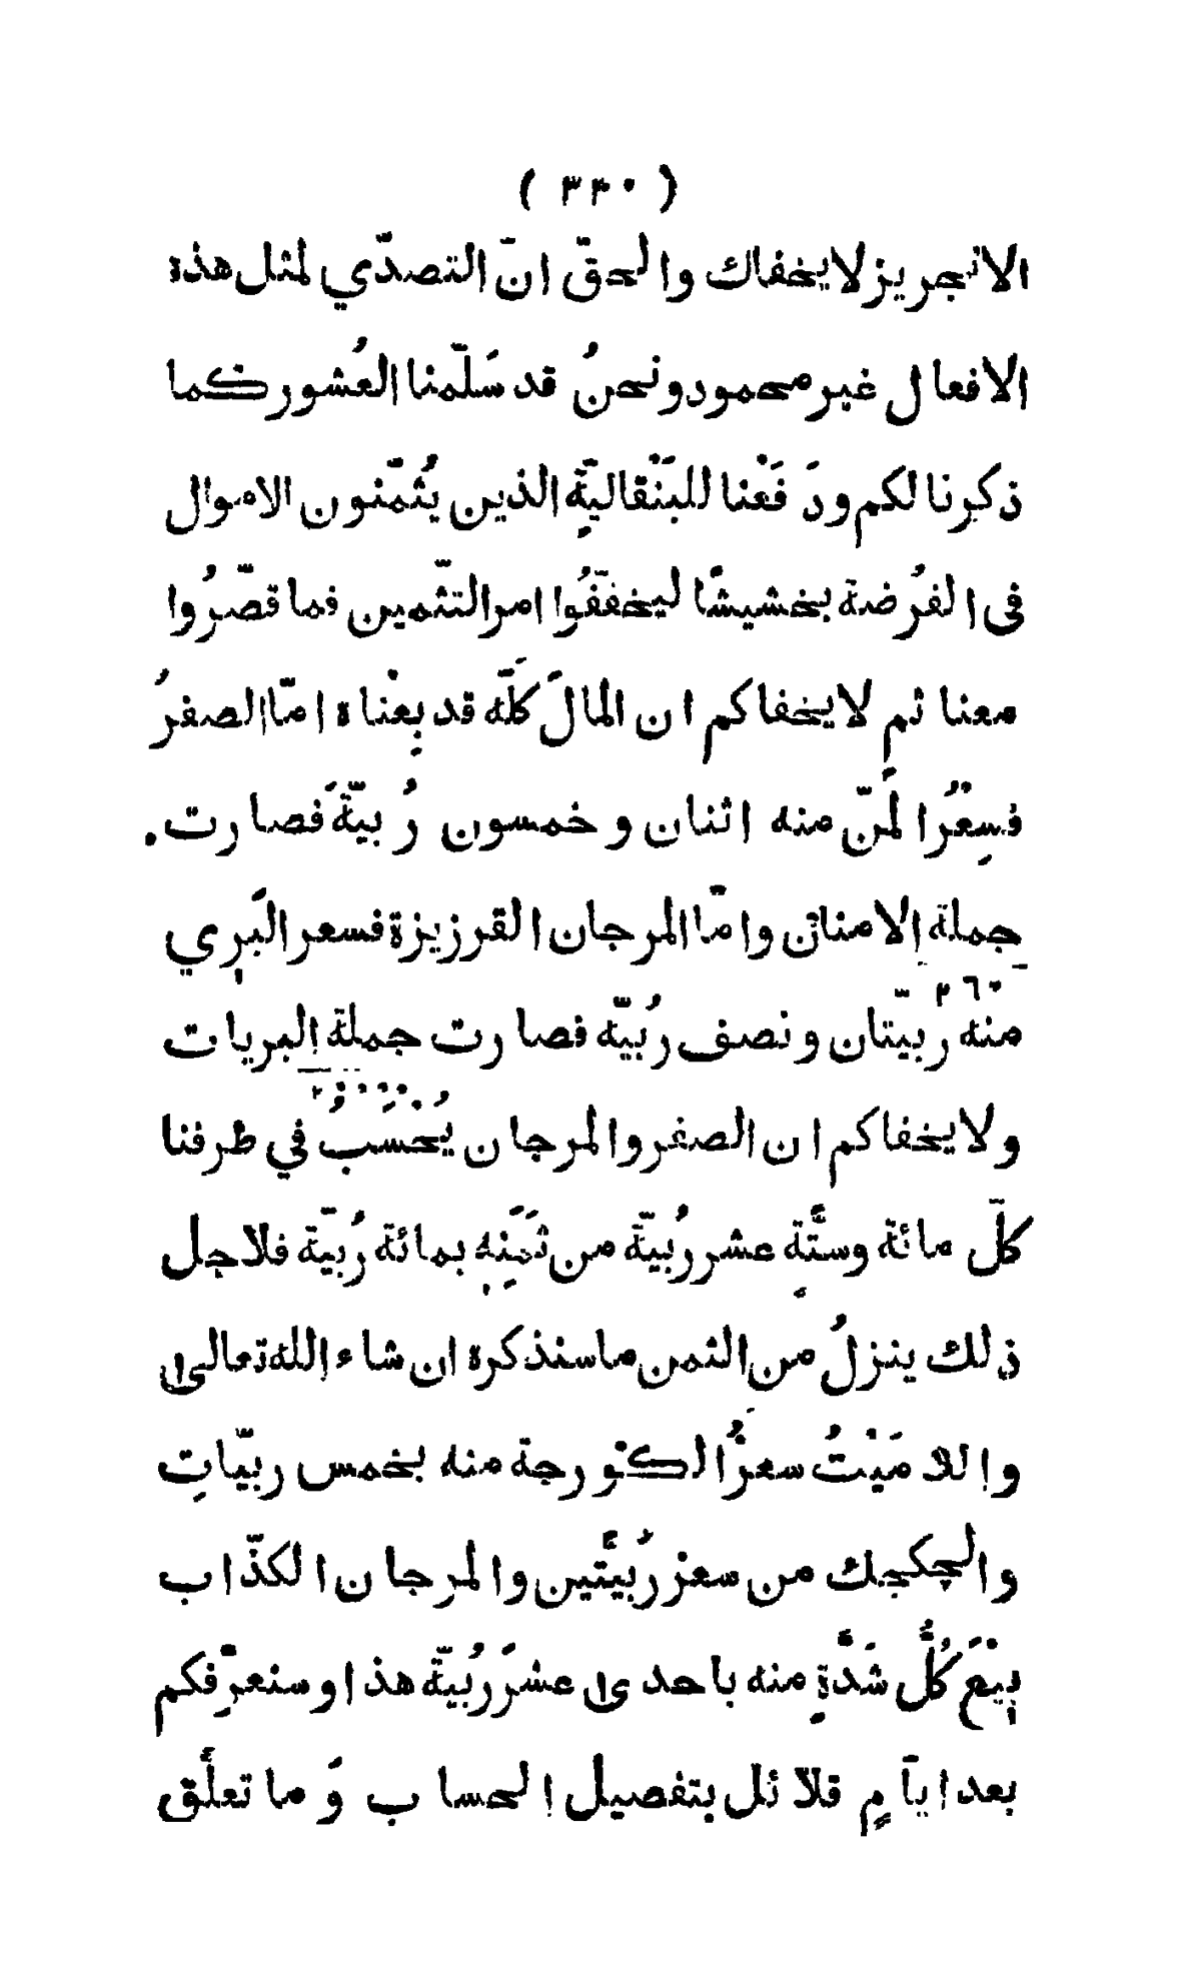 ( ٣٣٠ )
الانجريز لا يخفاك والحقّ انّ التصدّي لمثل هذه
الافعال غير محمود ونحنُ قد سَلّمنا العُشور كما
ذكرنا لكم ودَفَعْنا للبَنْقاليّةِ الذين يُثمّنون الاموال
فى الفُرضة بخشيشًا ليخففّوُا امر التثّمين فما قصّرُوا
معنا ثم لا يخفاكم ان المالَ كلَّه قد بِعْناه امّا الصفرُ
فسِعْرُ المَنّ منه اثنان وخمسون رُبيّةً فصارت
جملة الامنان وامّا المرجان القرزيزة فسعر البَرِي
٣٦٠
منه رُبيّتان ونصف رُبيّة فصارت جملة البريات
ولا يخفاكم ان الصفر والمرجان يُحْسَبُ في طرفنا
كلّ مائة وستَّةِ عشر رُبيّة من ثَمَنِهِ بمائة رُبيّة فلاجل
ذلك ينزلُ من الثمن ما سنذكره ان شاء الله تعالى
واللامَيْتُ سعرُ الكورجة منه بخمس ربيّاتٍ
والچكچك من سعر رُبيَّتين والمرجان الكذّاب
بِيْعَ كُلُّ شَدَّةٍ منه باحدى عشرَ رُبيّة هذا وسنعرّفكم
بعد ايّامٍ قلائل بتفصيل الحساب وَما تعلَّق